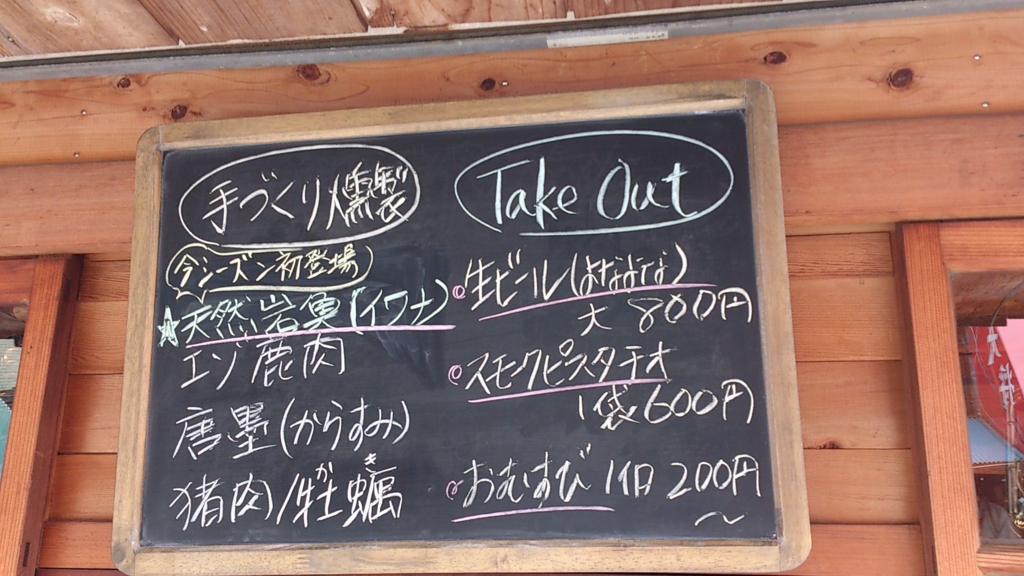 手づくり燻製
今シーズン初登場
☆天然岩魚(イワナ)
エゾ鹿肉
唐墨(からすみ)
猪肉/牡蠣
かき
Take Out
生ビール(よなよな)
大 800円
スモークピスタチオ
1袋600円
おむすび 1個 200円
〜